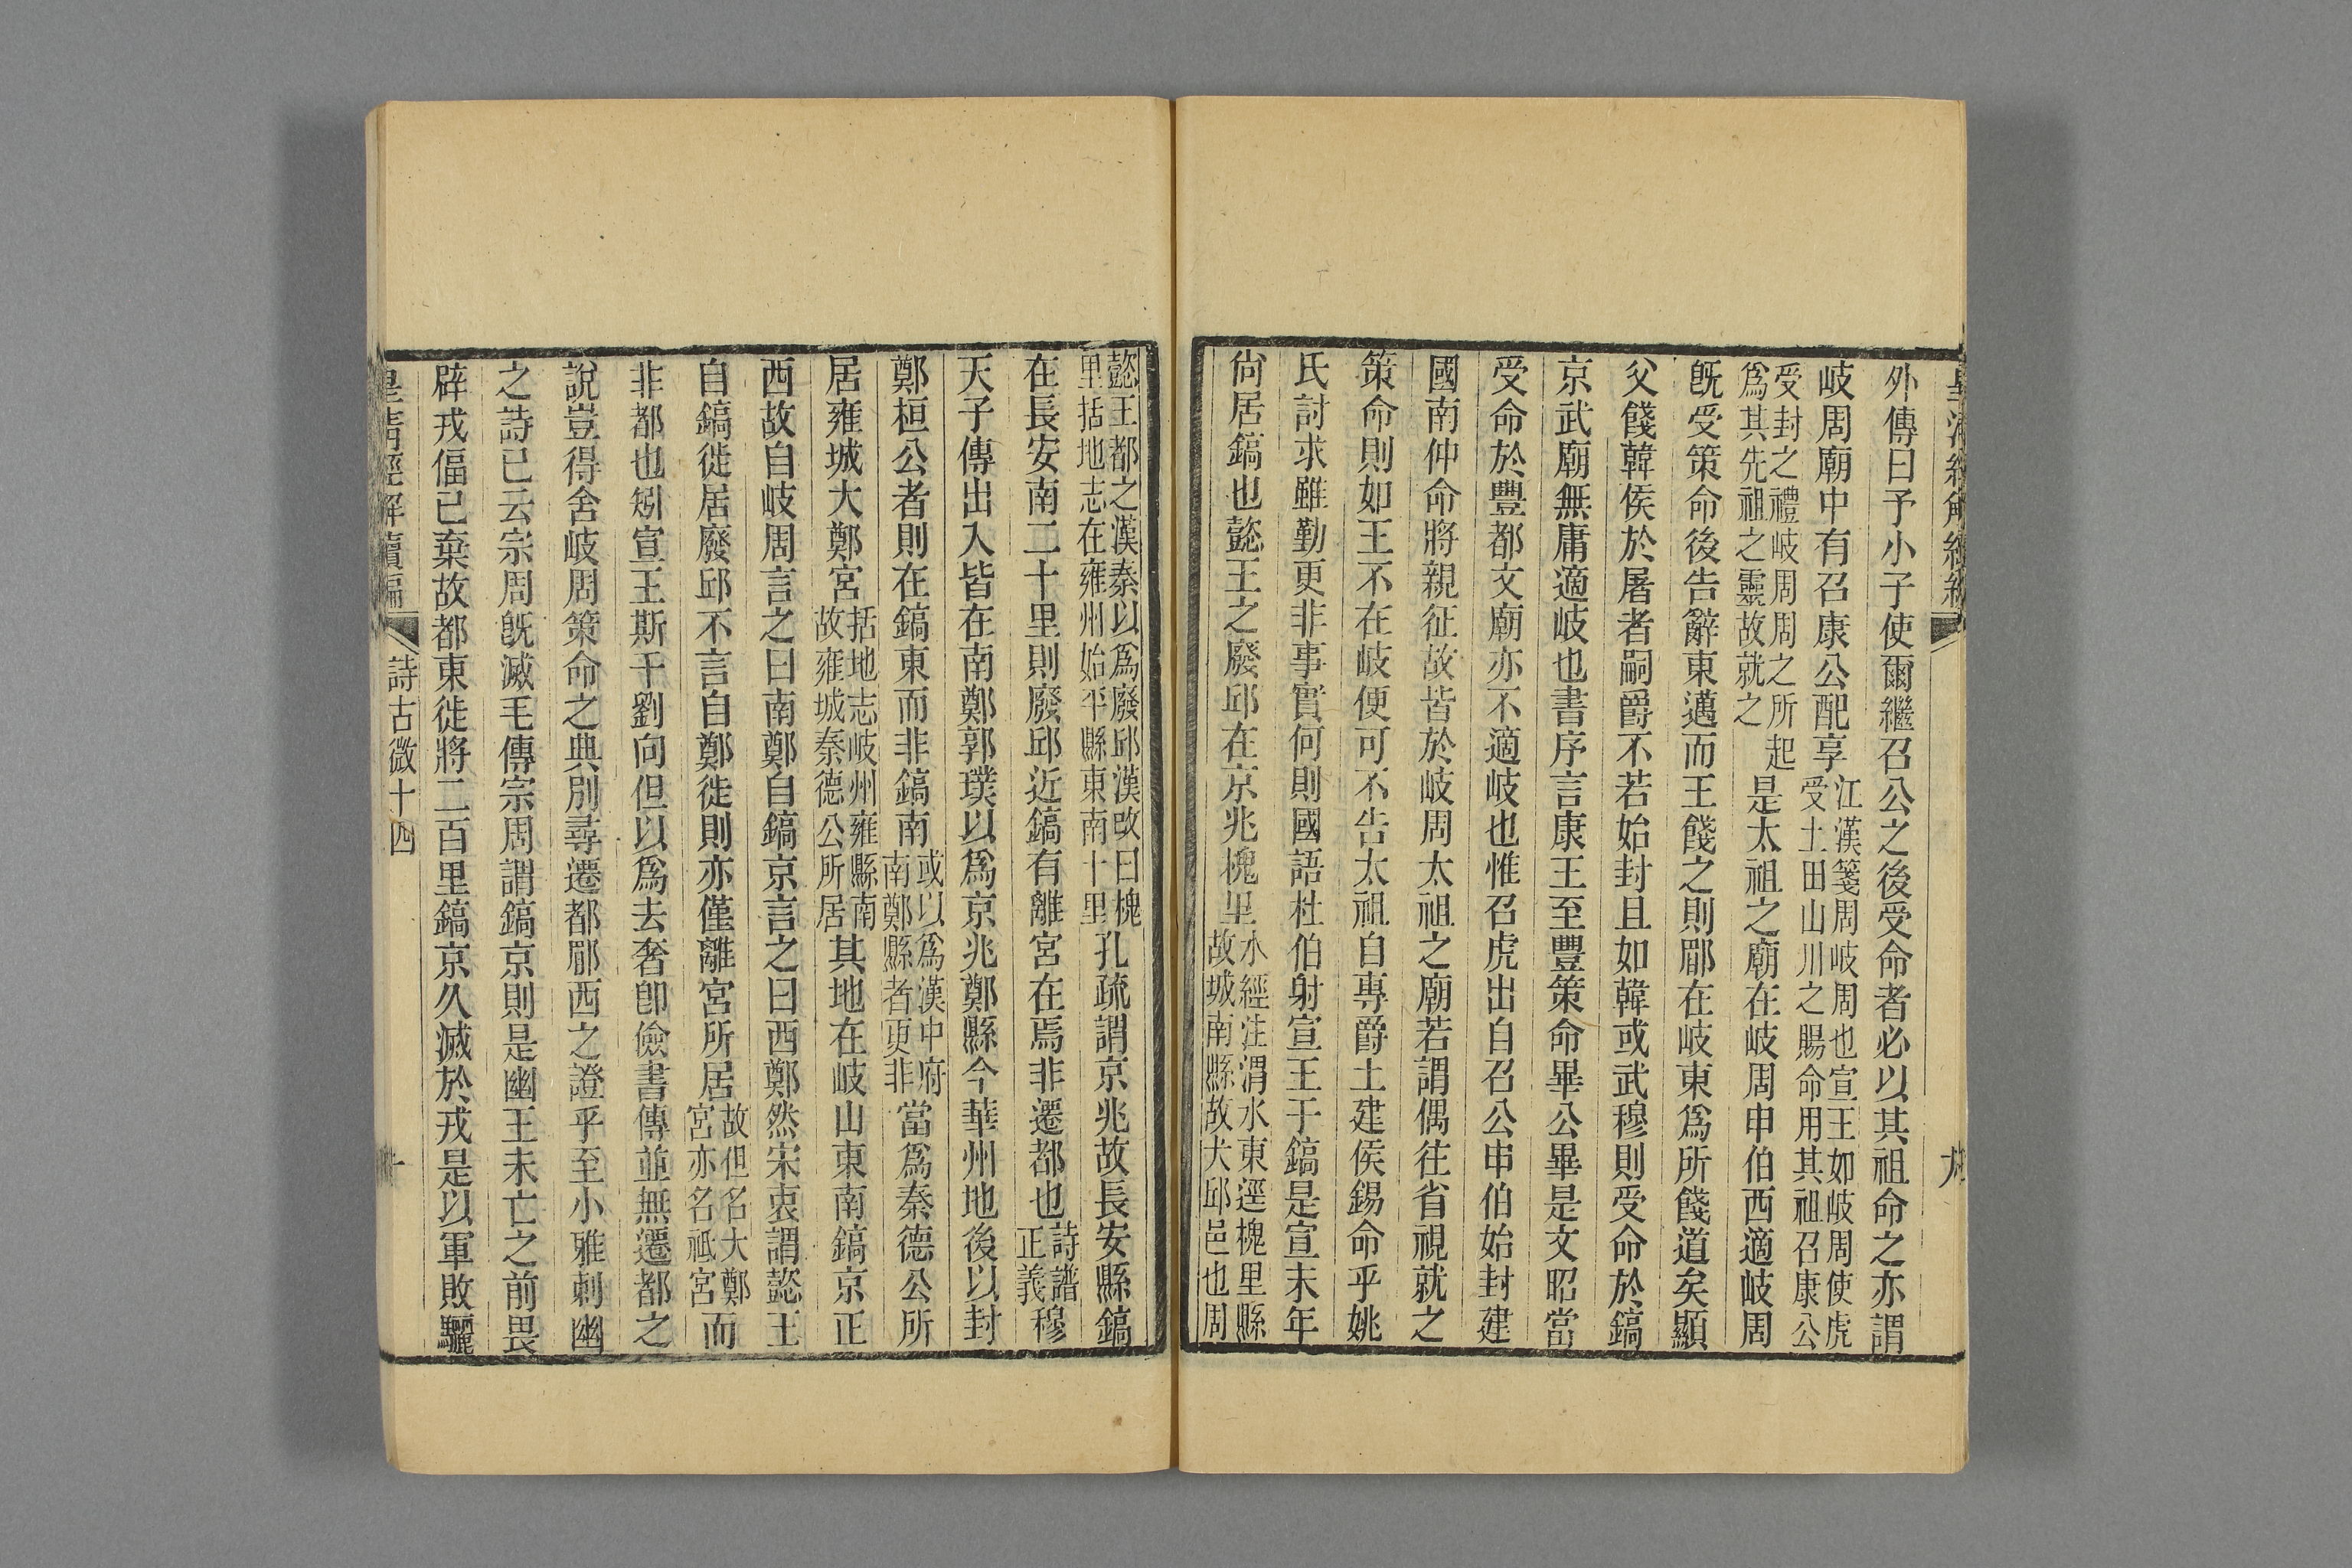 外傳曰予小子使爾繼召公之後受命者必以其祖命之亦謂
岐周廟中有召康公配享江漢箋周岐周也宣王如岐周使虎受土田山川之賜命用其祖召康公
受封之禮岐周周之所起爲其先祖之靈故就之是太祖之廟在岐周申伯西適岐周
旣受策命後告辭東邁而王餞之則郿在岐東爲所餞道矣顯
父餞韓侯於屠者嗣爵不若始封且如韓或武穆則受命於鎬
京武廟無庸適岐也書序言康王至豐策命畢公畢是文昭當
受命於豐都文廟亦不適岐也惟召虎出自召公申伯始封建
國南仲命將親征故皆於岐周太祖之廟若謂偶往省視就之
策命則如王不在岐便可不告太祖自專爵土建侯錫命乎姚
氏討求雖勤更非事實何則國語杜伯射宣王于鎬是宣末年
尙居鎬也懿王之廢邱在京兆槐里水經注渭水東逕槐里縣故城南縣故犬邱邑也周
懿王都之漢秦以爲廢邱漢改曰槐里括地志在雍州始平縣東南十里孔疏謂京兆故長安縣鎬
在長安南二十里則廢邱近鎬有離宮在焉非遷都也詩譜正義穆
天子傳出入皆在南鄭郭璞以爲京兆鄭縣今華州地後以封
鄭桓公者則在鎬東而非鎬南或以爲漢中府南鄭縣者更非當爲秦德公所
居雍城大鄭宮括地志岐州雍縣南故雍城秦德公所居其地在岐山東南鎬京正
西故自岐周言之曰南鄭自鎬京言之曰西鄭然宋衷謂懿王
自鎬徙居廢邱不言自鄭徙則亦僅離宮所居故但名大鄭宮亦名祗宮而
非都也矧宣王斯干劉向但以爲去奢卽儉書傳並無遷都之
說豈得舍岐周策命之典別尋遷都郿西之證乎至小雅刺幽
之詩已云宗周旣滅毛傳宗周謂鎬京則是幽王未亡之前畏
辟戎偪已棄故都東徙將二百里鎬京久滅於戎是以軍敗驪
皇清經解續編 詩古微十四